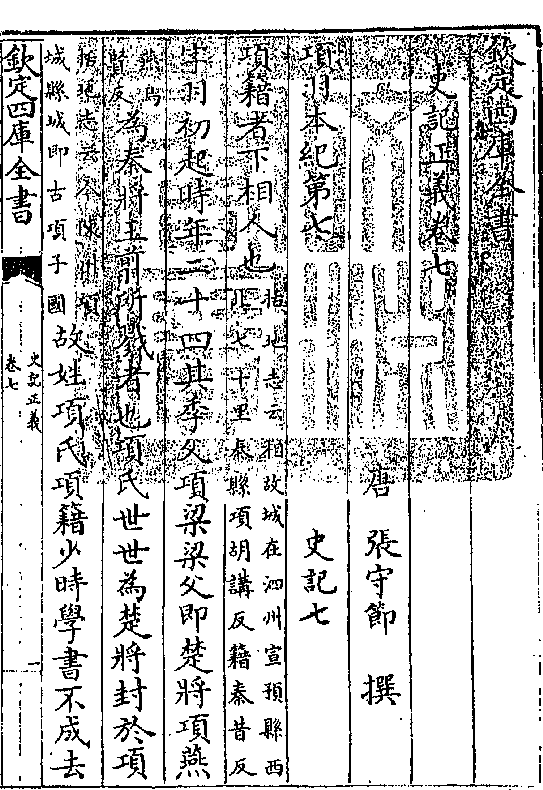 欽定四庫全書
史記正義卷七
唐 張守節 撰
項羽本紀第七 史記七
項籍者下相人也括地志云相故城在泗州宣預縣西
北七十里秦縣項胡講反籍秦昔反
字羽初起時年二十四其季父項梁梁父即楚將項燕
燕烏
賢反為秦將王翦所戮者也項氏世世為楚將封於項
括地志云今陳州項
城縣城即古項子國故姓項氏項籍少時學書不成去
欽定四庫全書
史記正義
卷七
一